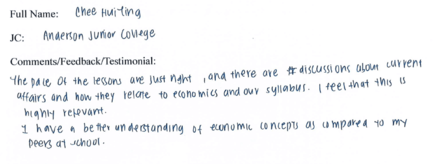 Full Name: Chee Hui Ting
JC: Anderson Junior College
Comments/Feedback/Testimonial:
The pace of the lessons are just right , and there are discussions about current
affairs and how they relate to economics and our syllabus. I feel that this is
highly relevant.
I have a better understanding of economic concepts as compared to my
peers at school.